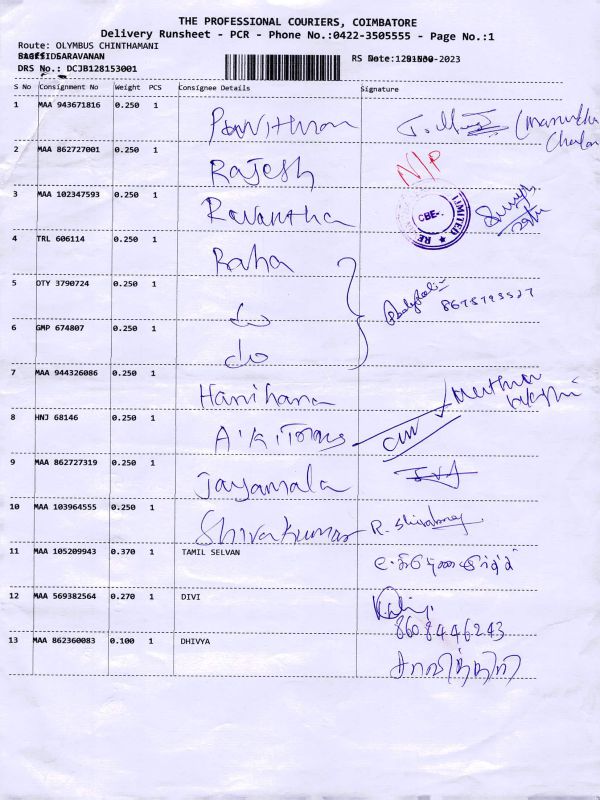 THE PROFESSIONAL COURIERS, COIMBATORE
Delivery Runsheet - PCR - Phone No.:0422-3505555 - Page No.:1
Route: OLYMBUS CHINTHAMANI
SARAVANAN
DRS No.: DCJB128153001
RS Date: -2023
S No Consignment No Weight PCS Consignee Details Signature
1 MAA 943671816 0.250 1 Pavithran
2 MAA 862727001 0.250 1 Rajesh N/P
3 MAA 102347593 0.250 1 Ravantha
CBE-.
LIMITED
4 TRL 606114 0.250 1 Raha
5 DTY 3790724 0.250 1 do 8675793527
6 GMP 674807 0.250 1 do
7 MAA 944326086 0.250 1 Harihana
8 HNJ 68146 0.250 1
9 MAA 862727319 0.250 1 Jayamala
10 MAA 103964555 0.250 1 Shivakumar
11 MAA 105209943 0.370 1 TAMIL SELVAN
12 MAA 569382564 0.270 1 DIVI
8608446243
13 MAA 862360083 0.100 1 DHIVYA